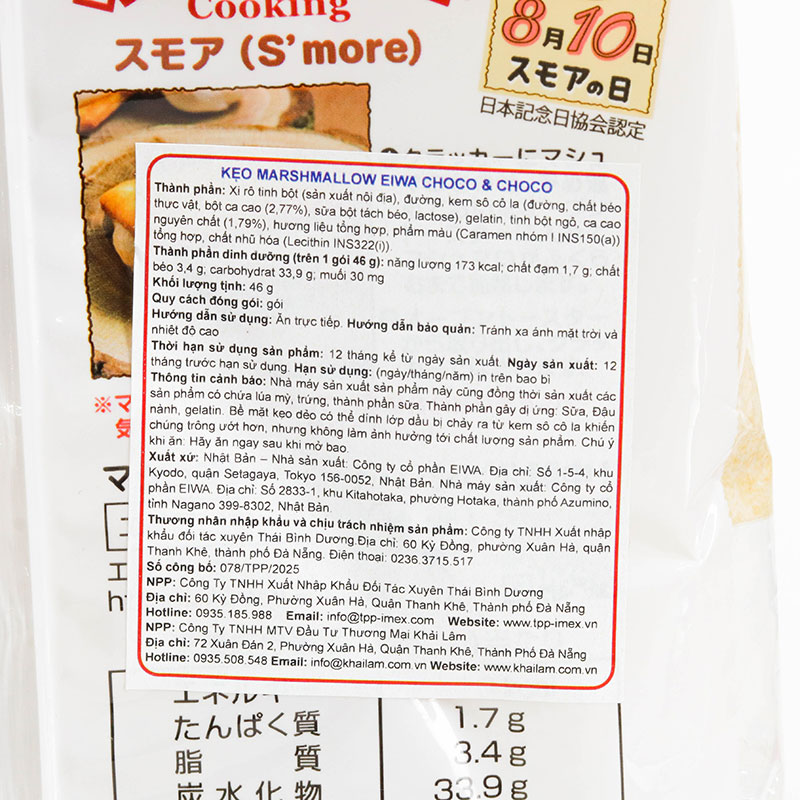 Cooking
スモア (S'more)
8月10日
スモアの日
日本記念日協会認定
クラッカーにマシュ
KẸO MARSHMALLOW EIWA CHOCO & CHOCO
Thành phần: Xi rô tinh bột (sản xuất nội địa), đường, kem sô cô la (đường, chất béo
thực vật, bột ca cao (2,77%), sữa bột tách béo, lactose), gelatin, tinh bột ngô, ca cao
nguyên chất (1,79%), hương liệu tổng hợp, phẩm màu (Caramen nhóm I INS150(a))
tổng hợp, chất nhũ hóa (Lecithin INS322(i)).
Thành phần dinh dưỡng (trên 1 gói 46 g): năng lượng 173 kcal; chất đạm 1,7 g; chất
béo 3,4 g; carbohydrat 33,9 g; muối 30 mg
Khối lượng tịnh: 46 g
Quy cách đóng gói: gói
Hướng dẫn sử dụng: Ăn trực tiếp. Hướng dẫn bảo quản: Tránh xa ánh mặt trời và
nhiệt độ cao
Thời hạn sử dụng sản phẩm: 12 tháng kể từ ngày sản xuất. Ngày sản xuất: 12
tháng trước hạn sử dụng. Hạn sử dụng: (ngày/tháng/năm) in trên bao bì
Thông tin cảnh báo: Nhà máy sản xuất sản phẩm này cũng đồng thời sản xuất các
sản phẩm có chứa lúa mỳ, trứng, thành phần sữa. Thành phần gây dị ứng: Sữa, Đậu
nành, gelatin. Bề mặt kẹo dẻo có thể dính lớp dầu bị chảy ra từ kem sô cô la khiến
chúng trông ướt hơn, nhưng không làm ảnh hưởng tới chất lượng sản phẩm. Chú ý
khi ăn: Hãy ăn ngay sau khi mở bao.
Xuất xứ: Nhật Bản – Nhà sản xuất: Công ty cổ phần EIWA. Địa chỉ: Số 1-5-4, khu
Kyodo, quận Setagaya, Tokyo 156-0052, Nhật Bản. Nhà máy sản xuất: Công ty cổ
phần EIWA. Địa chỉ: Số 2833-1, khu Kitahotaka, phường Hotaka, thành phố Azumino,
tỉnh Nagano 399-8302, Nhật Bản.
Thương nhân nhập khẩu và chịu trách nhiệm sản phẩm: Công ty TNHH Xuất nhập
khẩu đối tác xuyên Thái Bình Dương.Địa chỉ: 60 Kỳ Đồng, phường Xuân Hà, quận
Thanh Khê, thành phố Đà Nẵng. Điện thoại: 0236.3715.517
Số công bố: 078/TPP/2025
NPP: Công Ty TNHH Xuất Nhập Khẩu Đối Tác Xuyên Thái Bình Dương
Địa chỉ: 60 Kỳ Đồng, Phường Xuân Hà, Quận Thanh Khê, Thành phố Đà Nẵng
Hotline: 0935.185.988 Email: info@tpp-imex.com Website: www.tpp-imex.vn
NPP: Công Ty TNHH MTV Đầu Tư Thương Mại Khải Lâm
Địa chỉ: 72 Xuân Đán 2, Phường Xuân Hà, Quận Thanh Khê, Thành Phố Đà Nẵng
Hotline: 0935.508.548 Email: info@khailam.com.vn Website: www.khailam.com.vn
※マ
気
マ
エネルギ
たんぱく質 1.7g
脂質 3.4g
炭水化物 33.9g